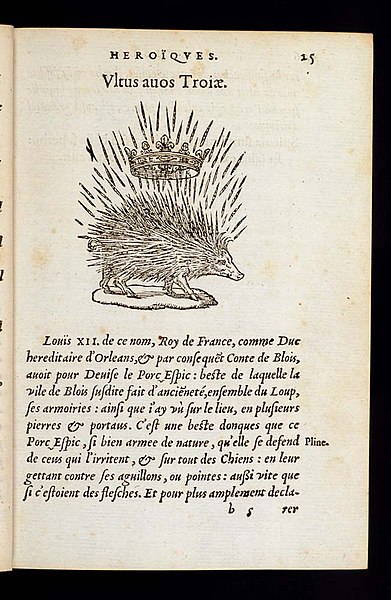 HEROÏQVES. 25
Vltus auos Troiæ.
Louïs XII. de ce nom, Roy de France, comme Duc
hereditaire d'Orleans, & par consequēt Conte de Blois,
auoit pour Deuise le Porc Espic: beste de laquelle la
vile de Blois susdite fait d'anciēneté, ensemble du Loup,
ses armoiries: ainsi que i'ay vù sur le lieu, en plusieurs
pierres & portaus. C'est une beste donques que ce
Porc Espic, si bien armee de nature, qu'elle se defend Pline.
de ceus qui l'irritent, & sur tout des Chiens: en leur
gettant contre ses aguillons, ou pointes: aussi vite que
si c'estoient des flesches. Et pour plus amplement decla-
b 5 rer